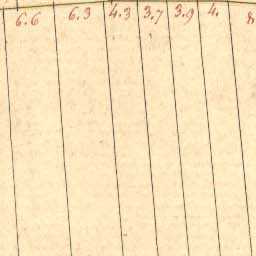 6.6 6.3 4.3 3.7 3.9 4. 8